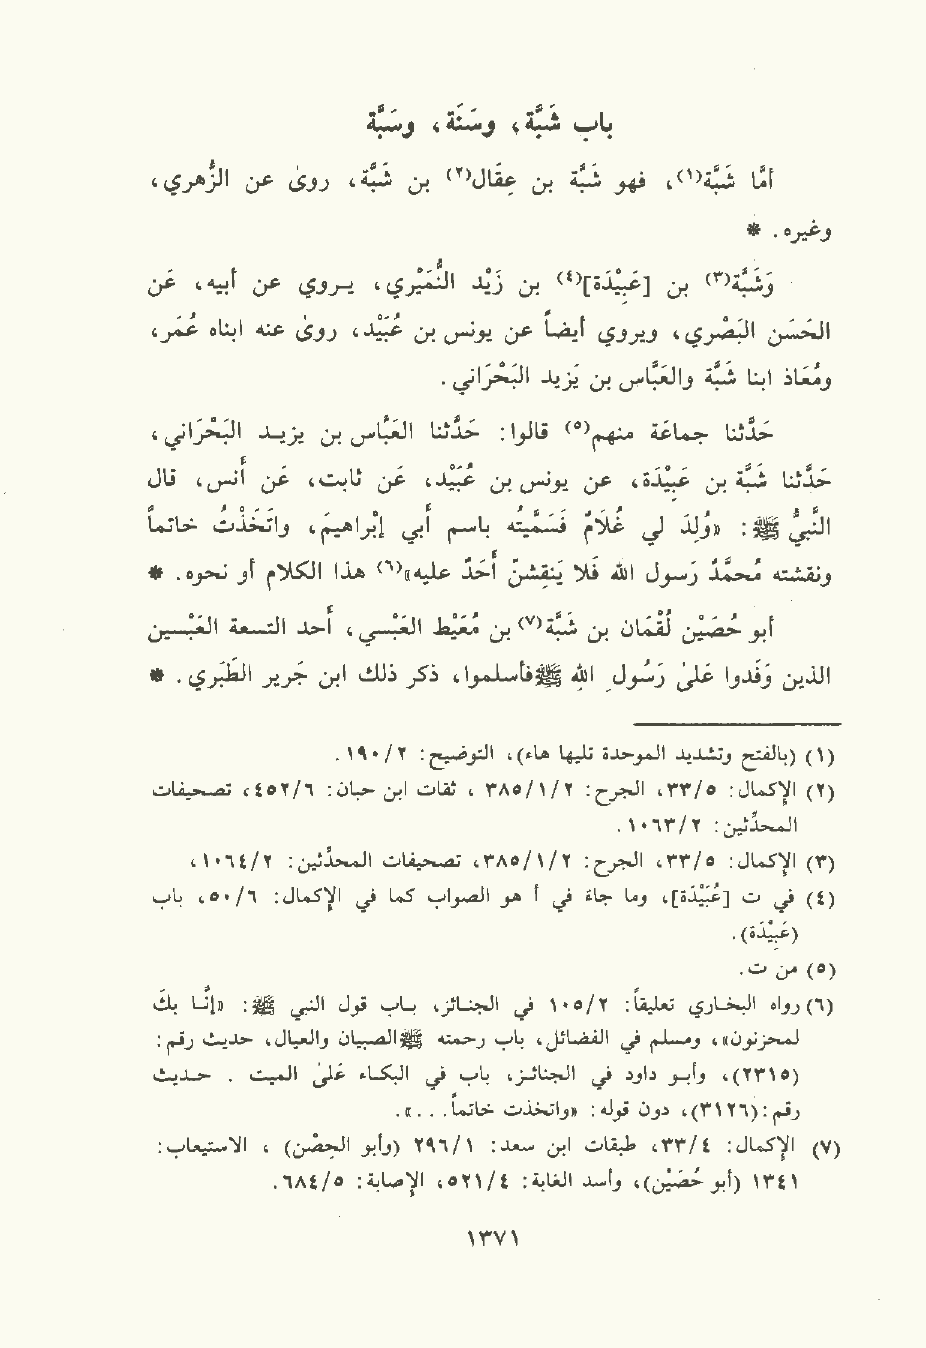 باب شَبَّة، وسَنَة، وسَبَّة
أمَّا شَبَّة(١)، فهو شَبَّة بن عِقَال(٢) بن شَبَّة، روىٰ عن الزُّهري،
وغيره. *
وَشَبَّة(٣) بن [عَبِيْدَة](٤) بن زَيْد النُّمَيْري، يروي عن أبيه، عَن
الحَسَن البَصْري، ويروي أيضاً عن يونس بن عُبَيْد، روىٰ عنه ابناه عُمَر،
ومُعَاذ ابنا شَبَّة والعَبَّاس بن يَزيد البَحْرَاني.
حَدَّثنا جماعَة منهم(٥) قالوا: حَدَّثنا العَبَّاس بن يزيد البَحْرَاني،
حَدَّثنا شَبَّة بن عَبِيْدَة، عن يونس بن عُبَيْد، عَن ثابت، عَن أَنس، قال
النَّبيُّ ﷺ: «وُلِدَ لي غُلَامٌ فَسَمَّيتُه باسم أَبي إبْراهيم، واتَخَذْتُ خاتماً
ونقشته مُحمَّد رَسول الله فَلا يَنقشنّ أَحَدٌ عليه»(٦) هذا الكلام أو نحوه. *
أبو حُصَيْن لُقْمَان بن شَبَّة(٧) بن مُعَيْط العَبْسي، أَحد التسعة العَبْسيين
الذين وَفَدوا عَلىٰ رَسُول اللهِ ﷺ فأسلموا، ذكر ذلك ابن جَرير الطَّبَري. *
(١) (بالفتح وتشديد الموحدة تليها هاء)، التوضيح: ٢/ ١٩٠.
(٢) الإكمال: ٥/ ٣٣، الجرح: ٢/ ١/ ٣٨٥، ثقات ابن حبان: ٦/ ٤٥٢، تصحيفات
المحدِّثين: ٢/ ١٠٦٣.
(٣) الإكمال: ٥/ ٣٣، الجرح: ٢/ ١/ ٣٨٥، تصحيفات المحدِّثين: ٢/ ١٠٦٤،
(٤) في ت [عُبَيْدَة]، وما جاءَ في أ هو الصواب كما في الإكمال: ٦/ ٥٠، باب
(عَبِيْدَة).
(٥) من ت.
(٦) رواه البخاري تعليقاً: ٢/ ١٠٥ في الجنائز، باب قول النبي ﷺ: «إنَّا بكَ
لمحزنون»، ومسلم في الفضائل، باب رحمته ﷺ الصبيان والعيال، حديث رقم:
(٢٣١٥)، وأبو داود في الجنائز، باب في البكاء عَلىٰ الميت. حديث
رقم: (٣١٢٦)، دون قوله: «واتخذت خاتماً...».
(٧) الإكمال: ٤/ ٣٣، طبقات ابن سعد: ١/ ٢٩٦ (وأبو الحِصْن)، الاستيعاب:
١٣٤١ (أبو حُصَيْن)، وأسد الغابة: ٤/ ٥٢١، الإصابة: ٥/ ٦٨٤.
١٣٧١